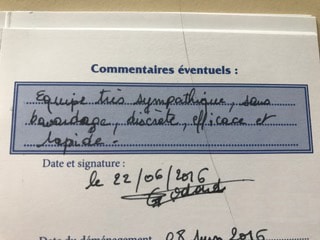 Commentaires éventuels :
Equipe très sympathique, sans
bavardage, discrète, efficace et
rapide.
Date et signature :
le 22/06/2016
Date du déménagement 08 Juin 2016